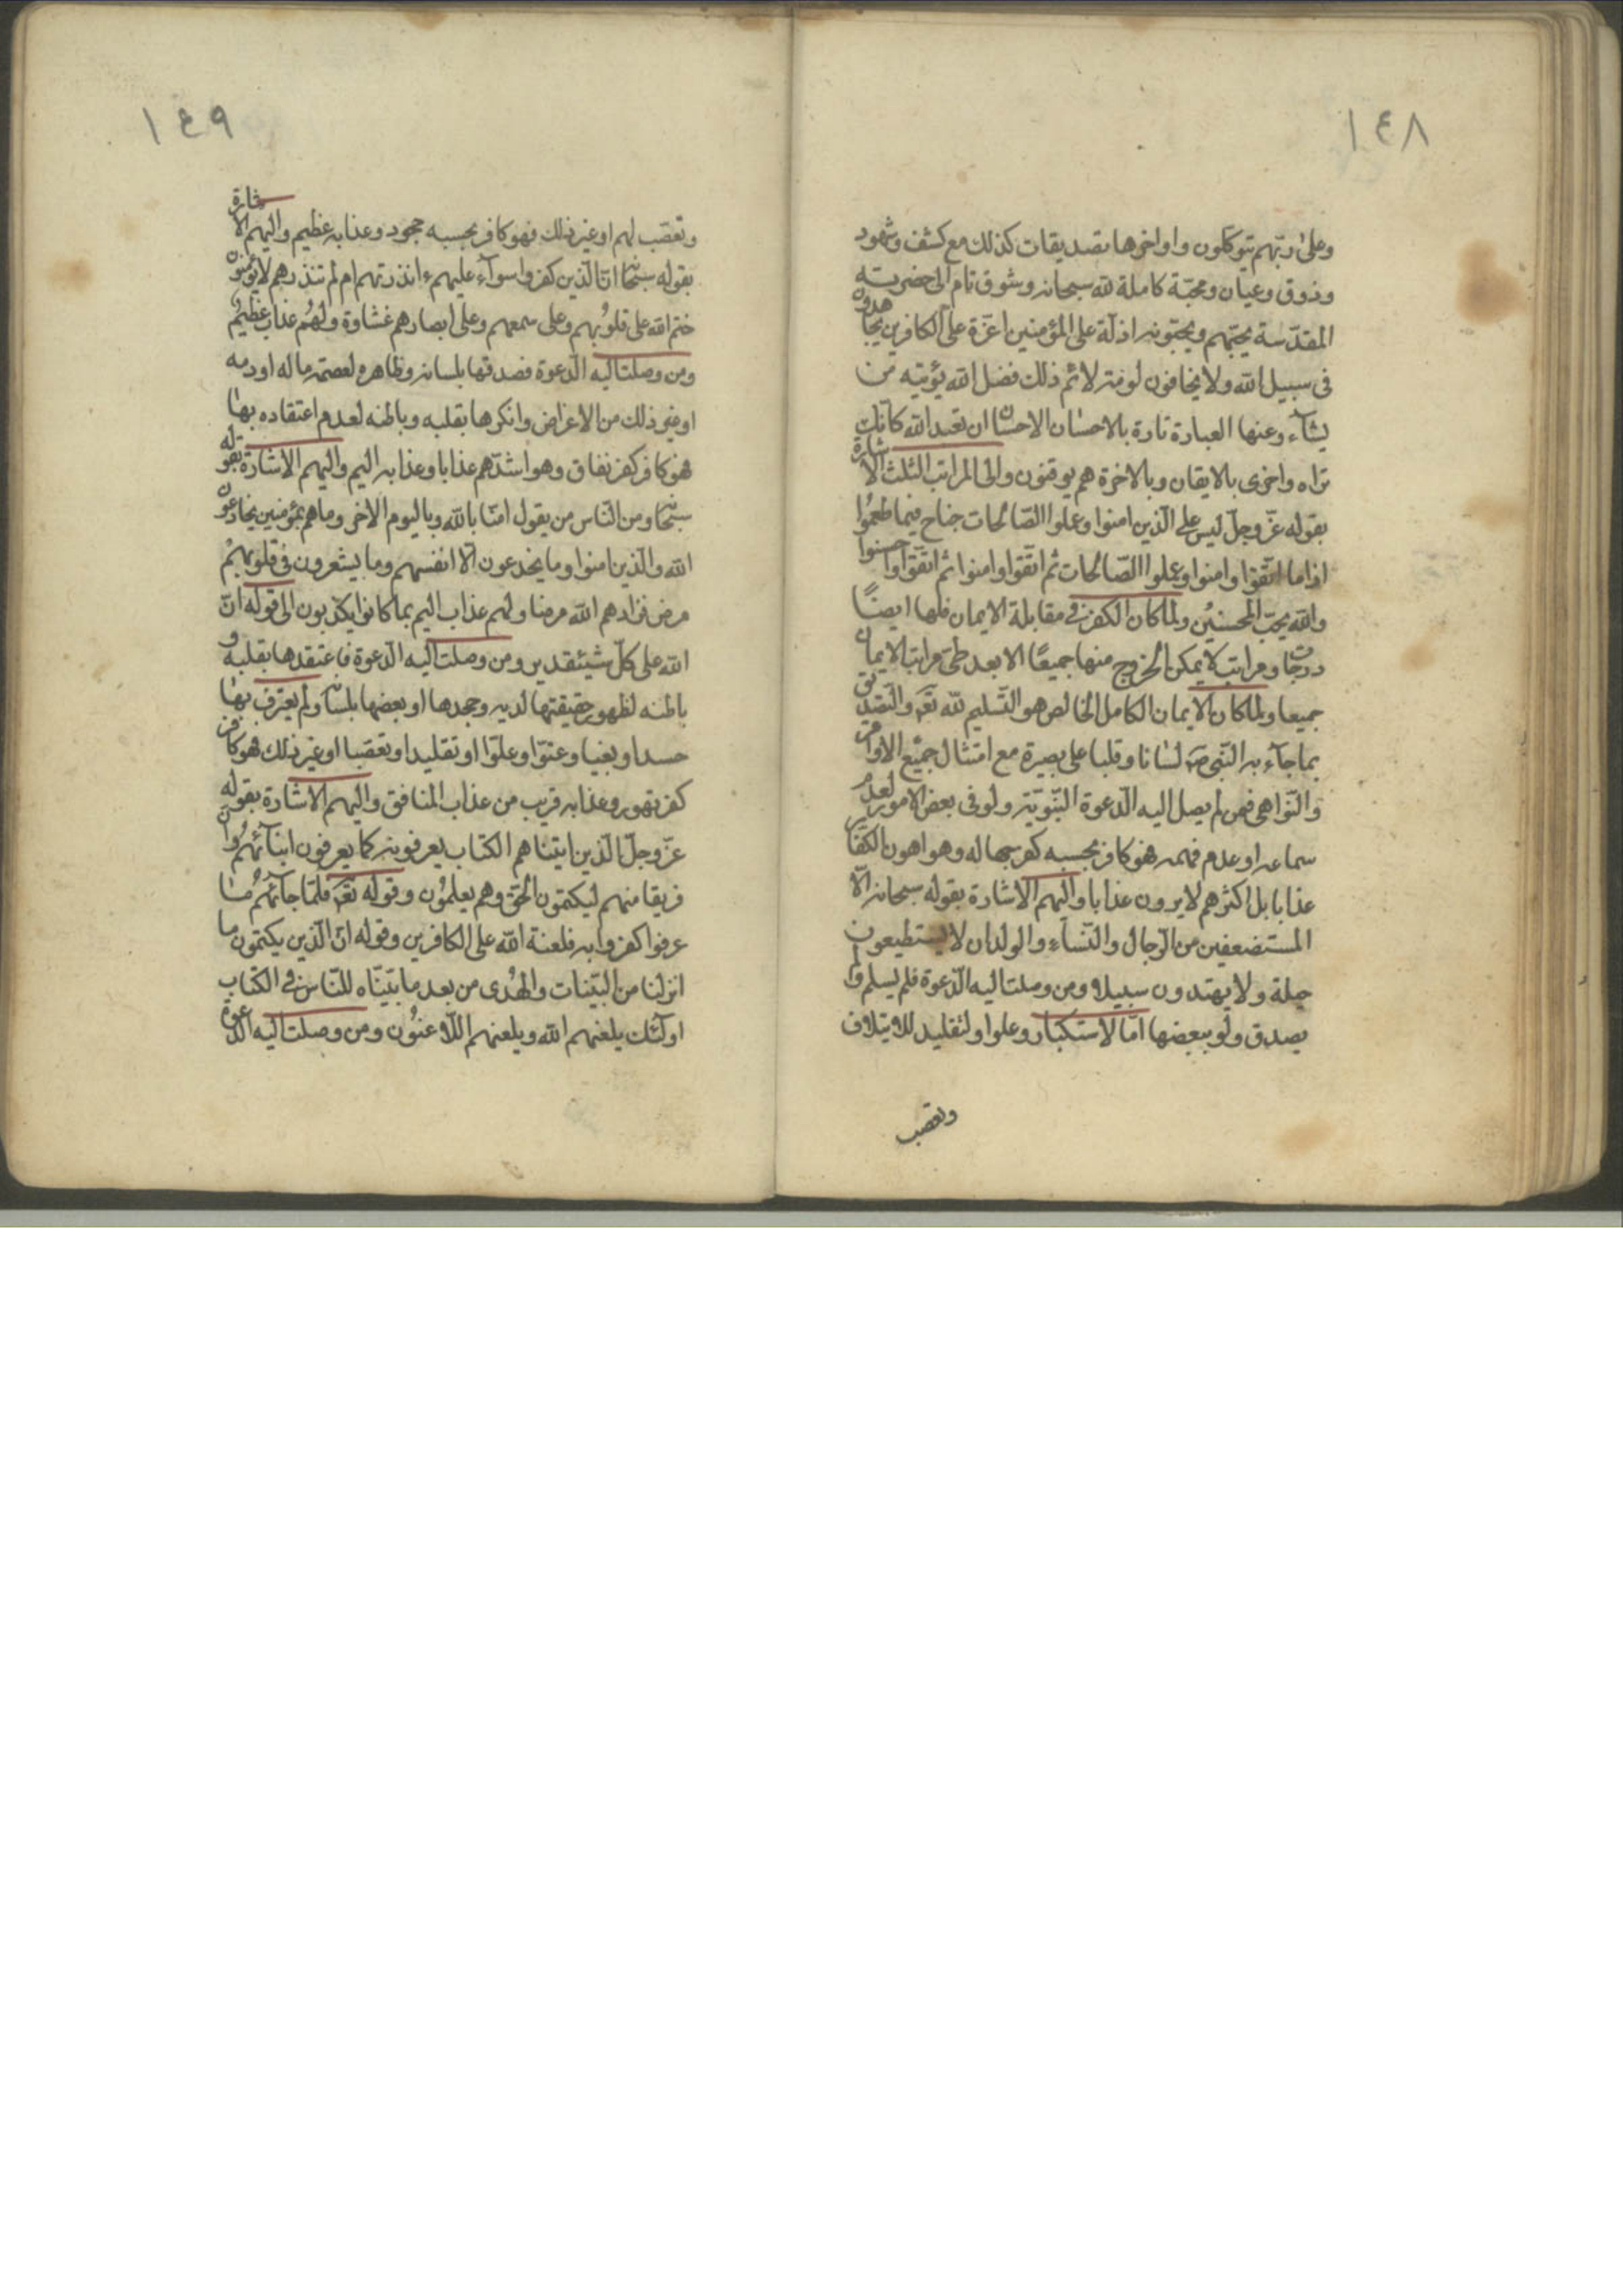 ١٤٨
وعلى ربّهم يتوكّلون واواخرها تصديقات كذلك مع كشف وشهود
وذوق وعيان ومحبّة كاملة لله سبحانه وشوق تام الى حضرته
المقدّسة يحبّهم ويحبّونه اذلّة على المؤمنين اعزّة على الكافرين يجاهدون
فى سبيل الله ولا يخافون لومة لائم ذلك فضل الله يؤتيه من
يشآء وعنها العبارة تارة بالاحسان الاحسان ان تعبد الله كانّك
تراه واخرى بالايقان وبالاخرة هم يوقنون والى المراتب الثلث الاشارة
بقوله عزّ وجلّ ليس على الّذين امنوا وعملوا الصّالحات جناح فيما طعموا
اذا ما اتّقوا وامنوا وعملوا الصّالحات ثم اتّقوا وامنوا ثم اتّقوا واحسنوا
والله يحبّ المحسنين ولما كان الكفر فى مقابلة الايمان فلها ايضًا
درجات ومراتب لا يمكن الخروج منها جميعًا الا بعد طى مراتب الايمان
جميعا ولما كان الايمان الكامل الخالص هو التّسليم لله تعَ والتّصديق
بما جآء به النّبى صَ لسانا وقلبا على بصيرة مع امتثال جميع الاوامر
والنّواهى فمن لم يصل اليه الدّعوة النّبويّة ولو فى بعض الامور لعدم
سماعه او عدم فهمه فهو كافر بحسبه كفر جهاله وهو اهون الكفّار
عذابا بل اكثرهم لا يرون عذابا واليهم الاشارة بقوله سبحانه الّا
المستضعفين من الرّجال والنّسآء والولدان لا يستطيعون
حيلة ولا يهتدون سبيلا ومن وصلت اليه الدّعوة فلم يسلم ولم
يصدق ولو ببعضها امّا لاستكبار وعلو او لتقليد للاسلاف
وتعصّب
١٤٩
وتعصّب لهم او غير ذلك فهو كافر بحسبه جحود وعذابه عظيم واليهم الاشارة
بقوله سبحانه انّ الّذين كفروا سوآء عليهم ءانذرتهم ام لم تنذرهم لا يؤمنون
ختم الله على قلوبهم وعلى سمعهم وعلى ابصارهم غشاوة ولهم عذاب عظيم
ومن وصلت اليه الدّعوة فصدقها بلسانه وظاهره لعصمة ماله او دمه
او غير ذلك من الاغراض وانكرها بقلبه وباطنه لعدم اعتقاده بها
فهو كافر كفر نفاق وهو اشدّهم عذابا وعذابه اليم واليهم الاشارة بقوله
سبحانه ومن النّاس من يقول امنّا بالله وباليوم الاخر وما هم بمؤمنين يخادعون
الله والّذين امنوا وما يخدعون الّا انفسهم وما يشعرون فى قلوبهم
مرض فزادهم الله مرضا ولهم عذاب اليم بما كانوا يكذبون الى قوله انّ
الله على كلّ شيئ قدير ومن وصلت اليه الدّعوة فاعتقدها بقلبه و
باطنه لظهور حقيقتها لديه وجحدها او بعضها بلسانه ولم يعترف بها
حسدا وبغيا وعتوّا وعلوّا او تقليدا وتعصّبا او غير ذلك فهو كافر
كفر تهود وعذابه قريب من عذاب المنافق واليهم الاشارة بقوله
عزّ وجلّ الّذين اتيناهم الكتاب يعرفونه كما يعرفون ابنآئهم وانّ
فريقا منهم ليكتمون الحق وهم يعلمون وقوله تعَ فلمّا جآئهم ما
عرفوا كفروا به فلعنة الله على الكافرين وقوله انّ الّذين يكتمون ما
انزلنا من البيّنات والهدى من بعد ما بيّنّاه للنّاس فى الكتاب
اولئك يلعنهم الله ويلعنهم اللّاعنون ومن وصلت اليه الدّعوة